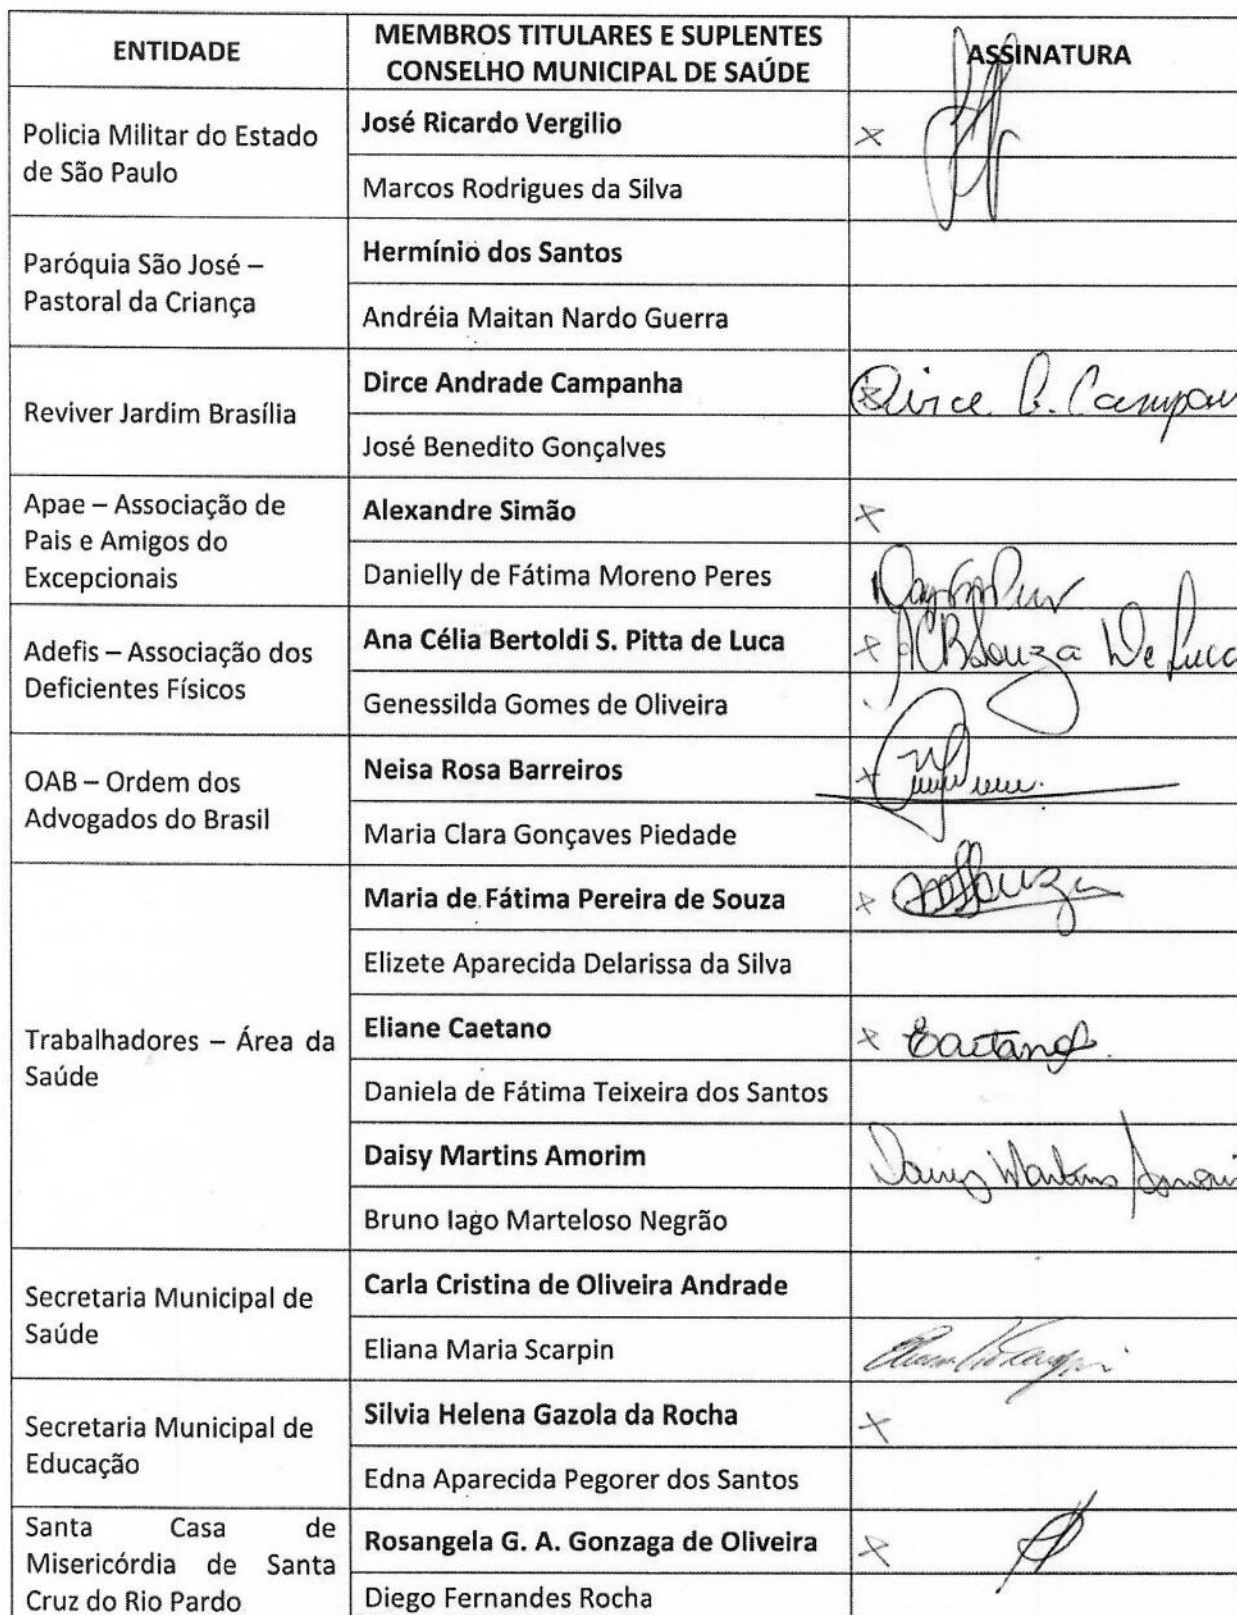 ENTIDADE
MEMBROS TITULARES E SUPLENTES
CONSELHO MUNICIPAL DE SAÚDE
ASSINATURA
Policia Militar do Estado
de São Paulo
José Ricardo Vergilio
×
Marcos Rodrigues da Silva
Paróquia São José –
Pastoral da Criança
Hermínio dos Santos
Andréia Maitan Nardo Guerra
Reviver Jardim Brasília
Dirce Andrade Campanha
× Dirce
José Benedito Gonçalves
Apae – Associação de
Pais e Amigos do
Excepcionais
Alexandre Simão
×
Danielly de Fátima Moreno Peres
Adefis – Associação dos
Deficientes Físicos
Ana Célia Bertoldi S. Pitta de Luca
× ACBSouza De Luca
Genessilda Gomes de Oliveira
OAB – Ordem dos
Advogados do Brasil
Neisa Rosa Barreiros
×
Maria Clara Gonçaves Piedade
Trabalhadores – Área da
Saúde
Maria de Fátima Pereira de Souza
×
Elizete Aparecida Delarissa da Silva
Eliane Caetano
× ECaetano
Daniela de Fátima Teixeira dos Santos
Daisy Martins Amorim
Daisy Martins Amorim
Bruno Iago Marteloso Negrão
Secretaria Municipal de
Saúde
Carla Cristina de Oliveira Andrade
Eliana Maria Scarpin
Secretaria Municipal de
Educação
Silvia Helena Gazola da Rocha
×
Edna Aparecida Pegorer dos Santos
Santa Casa de
Misericórdia de Santa
Cruz do Rio Pardo
Rosangela G. A. Gonzaga de Oliveira
×
Diego Fernandes Rocha